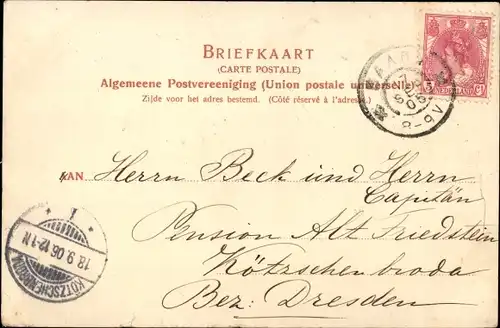 BRIEFKAART
(CARTE POSTALE)
Algemeene Postvereeniging (Union postale universelle)
Zijde voor het adres bestemd. (Côté réservé à l'adresse.)
8-9V
5 NEDERLAND Ct
AAN Herrn Beck und Herrn
Capitän
Pension Alt Friedstein
Kötzschenbroda
Bez: Dresden
1
18.9.06.12-1N
KÖTZSCHENBRODA